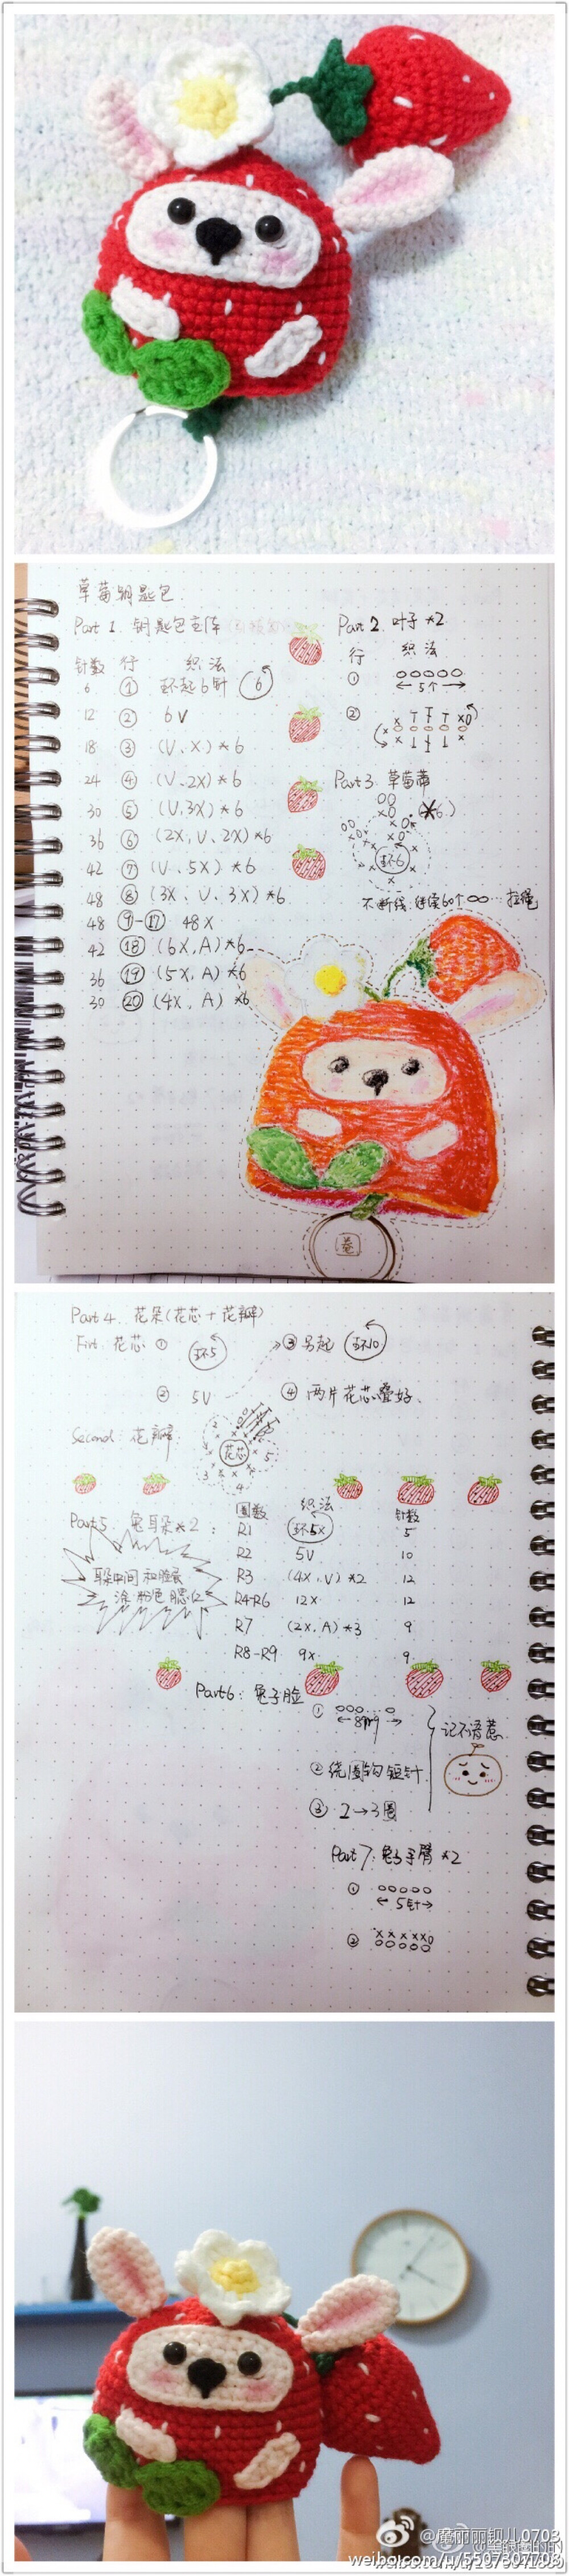 草莓钥匙包
Part 1. 钥匙包主阵
针数 行 织法
6 ① 环起6针 6
12 ② 6V
18 ③ (V、X)*6
24 ④ (V、2X)*6
30 ⑤ (V,3X)*6
36 ⑥ (2X,V、2X)*6
42 ⑦ (V、5X)*6
48 ⑧ (3X、V、3X)*6
48 ⑨-⑰ 48X
42 ⑱ (6X,A)*6
36 ⑲ (5X,A)*6
30 ⑳ (4X,A)*6
Part 2. 叶子*2
行 织法
① ooooo
5个
②
Part 3. 草莓蒂
(*6.)
环6
不断线 继续60个 拉绳
Part 4. 花朵(花芯+花瓣)
First: 花芯 ① 环5
② 5V
③ 另起 环10
④ 两片花芯叠好、
Second: 花瓣
花芯
2
3
4
5
Part 5. 兔耳朵*2:
圈数 织法 针数
R1 环5X 5
R2 5V 10
R3 (4X,V)*2 12
R4-R6 12X 12
R7 (2X,A)*3 9
R8-R9 9X 9
耳朵中间和脸底
涂粉色腮红
Part 6: 兔子脸
①
② 绕圈钩短针
③ 2→3圈
记不清惹
Part 7: 兔子手臂*2
① ooooo
5针
② xxxxxo
ooooo
@魔丽丽钡儿0703
weibo.com/u/5507307703